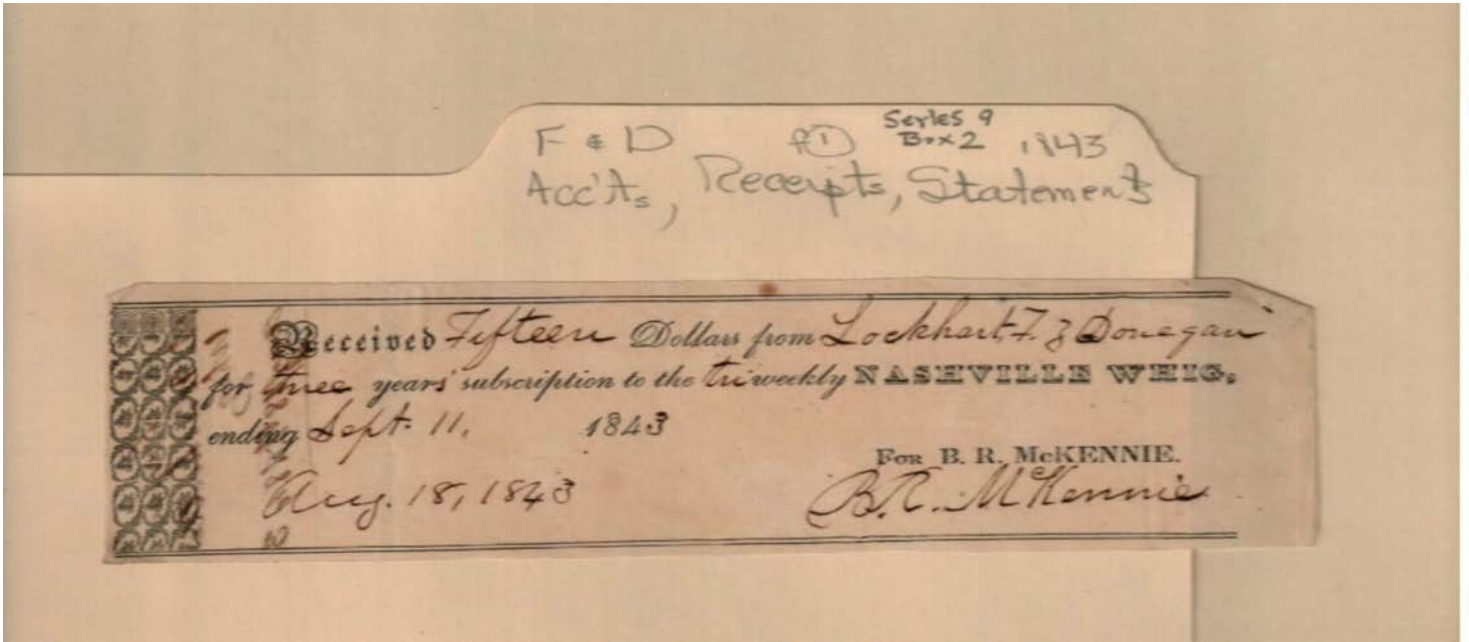 F & D f① Series 9
Box 2 1843
Acc'ts, Receipts, Statements
Received Fifteen Dollars from Lockhart, F. & Donegan
for three years' subscription to the tri weekly NASHVILLE WHIG,
ending Sept. 11, 1843
FOR B. R. McKENNIE.
Aug. 18, 1843 B. R. McKennie